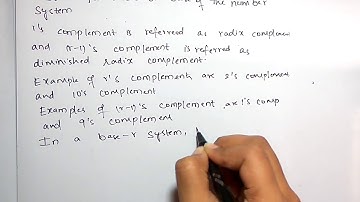 of the number
System
r's complement is referred as radix complement
and (r-1)'s complement is referred as
diminished Radix complement.
Example of r's complements are 2's complement
and 10's complement
Examples of (r-1)'s complement are 1's comp
and 9's complement
In a base-r system,